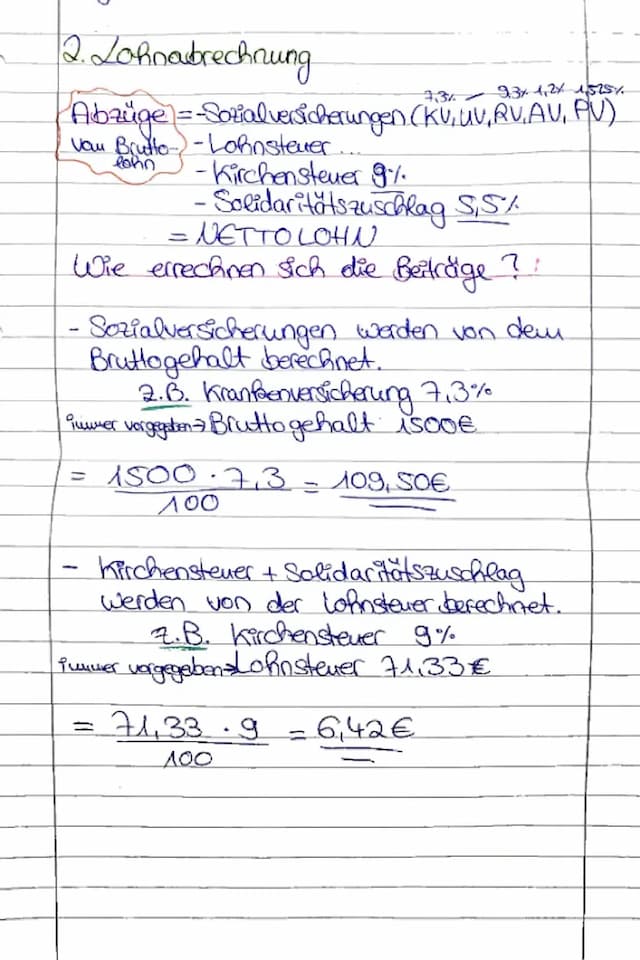 2. Lohnabrechnung
7,3% — 9,3% 1,2% 1,525%
Abzüge = - Sozialversicherungen (KV, UV, RV, AV, PV)
vom Brutto- - Lohnsteuer ...
lohn - Kirchensteuer 9%
- Solidaritätszuschlag 5,5%
= NETTOLOHN
Wie errechnen sich die Beiträge?:
- Sozialversicherungen werden von dem
Bruttogehalt berechnet.
z.B. Krankenversicherung 7,3%
immer vorgegeben → Bruttogehalt 1500€
= 1500 · 7,3 = 109,50€
100
- Kirchensteuer + Solidaritätszuschlag
werden von der Lohnsteuer berechnet.
z.B. Kirchensteuer 9%
immer vorgegeben → Lohnsteuer 71,33€
= 71,33 · 9 = 6,42€
100